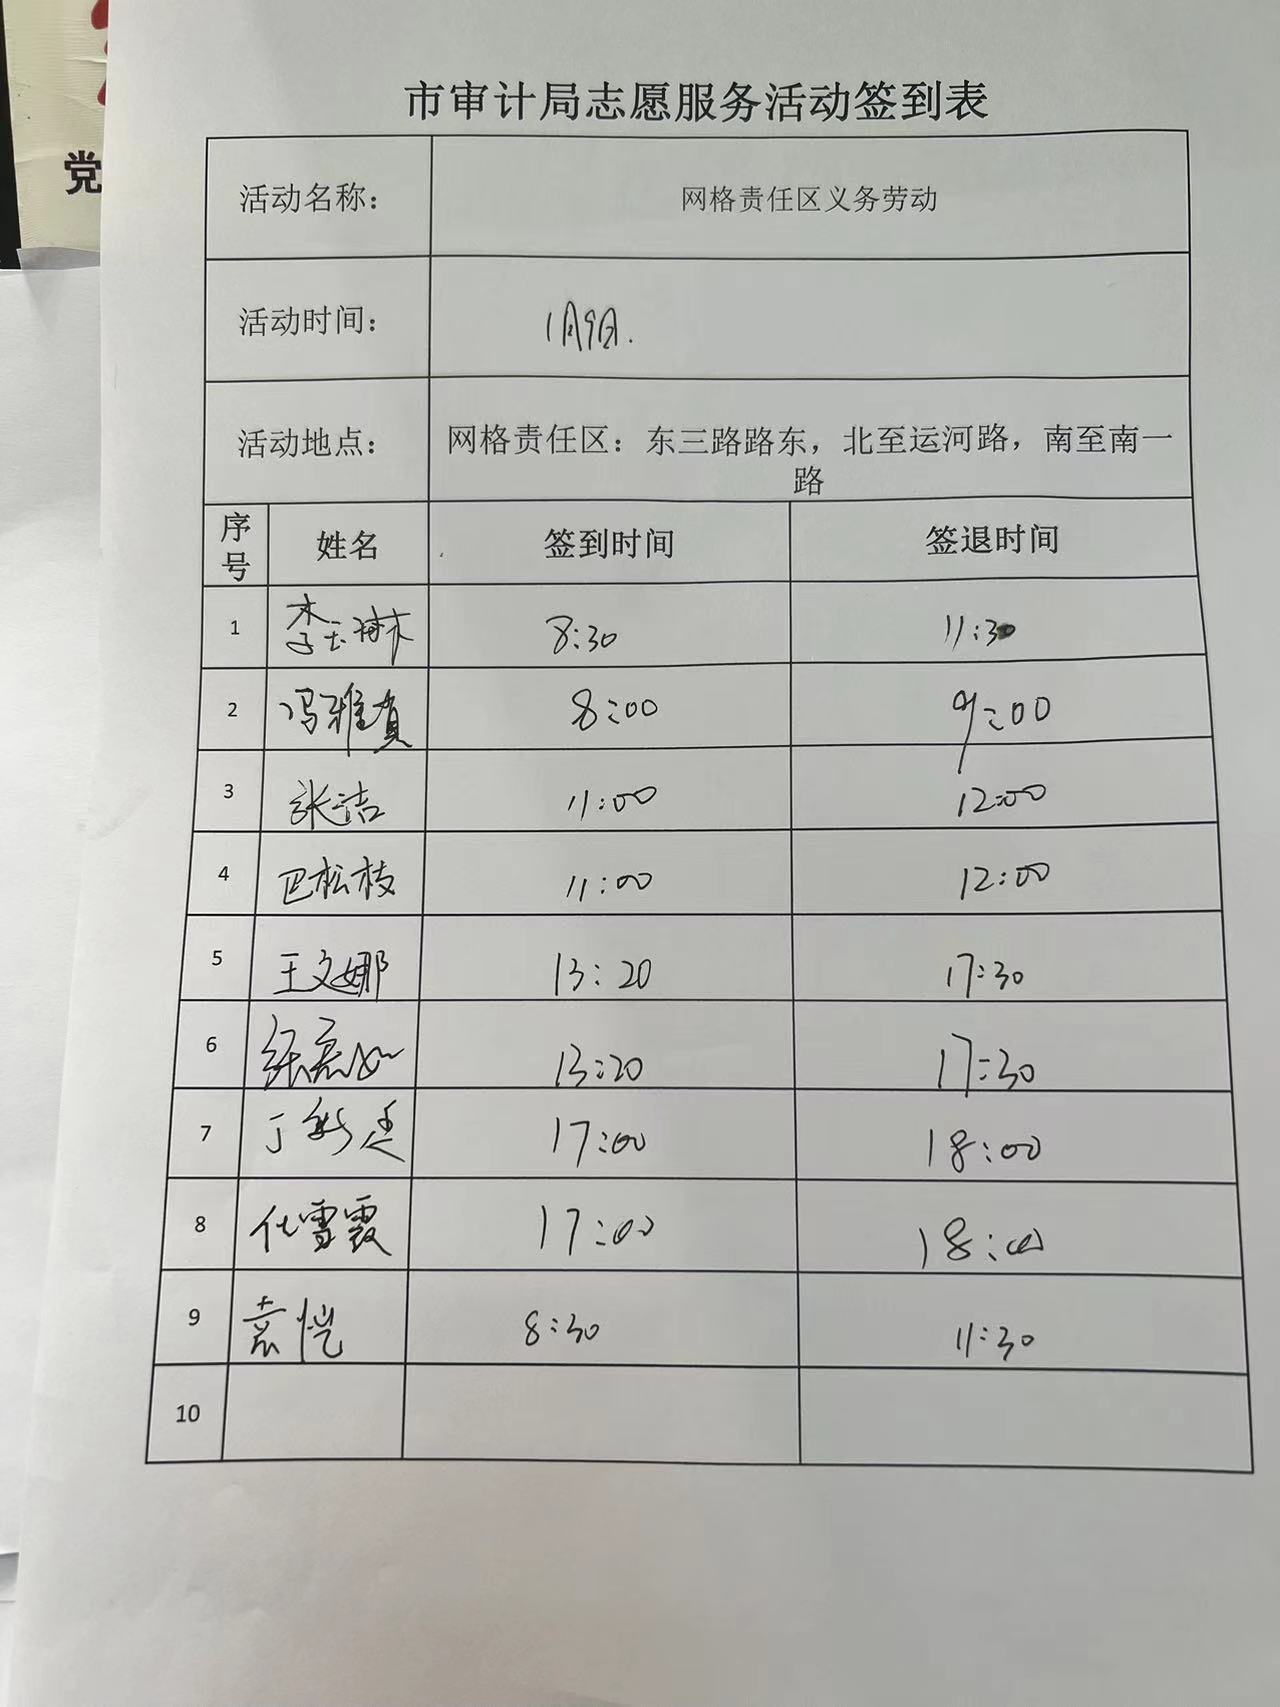 党
市审计局志愿服务活动签到表
活动名称： 网格责任区义务劳动
活动时间： 1月9日.
活动地点： 网格责任区：东三路路东，北至运河路，南至南一
路
序号 姓名 签到时间 签退时间
1 李玉琳 8:30 11:30
2 冯雅真 8:00 9:00
3 张洁 11:00 12:00
4 巴松枝 11:00 12:00
5 王文娜 13:20 17:30
6 张 如 13:20 17:30
7 丁 17:00 18:00
8 代雪霞 17:00 18:00
9 袁恺 8:30 11:30
10